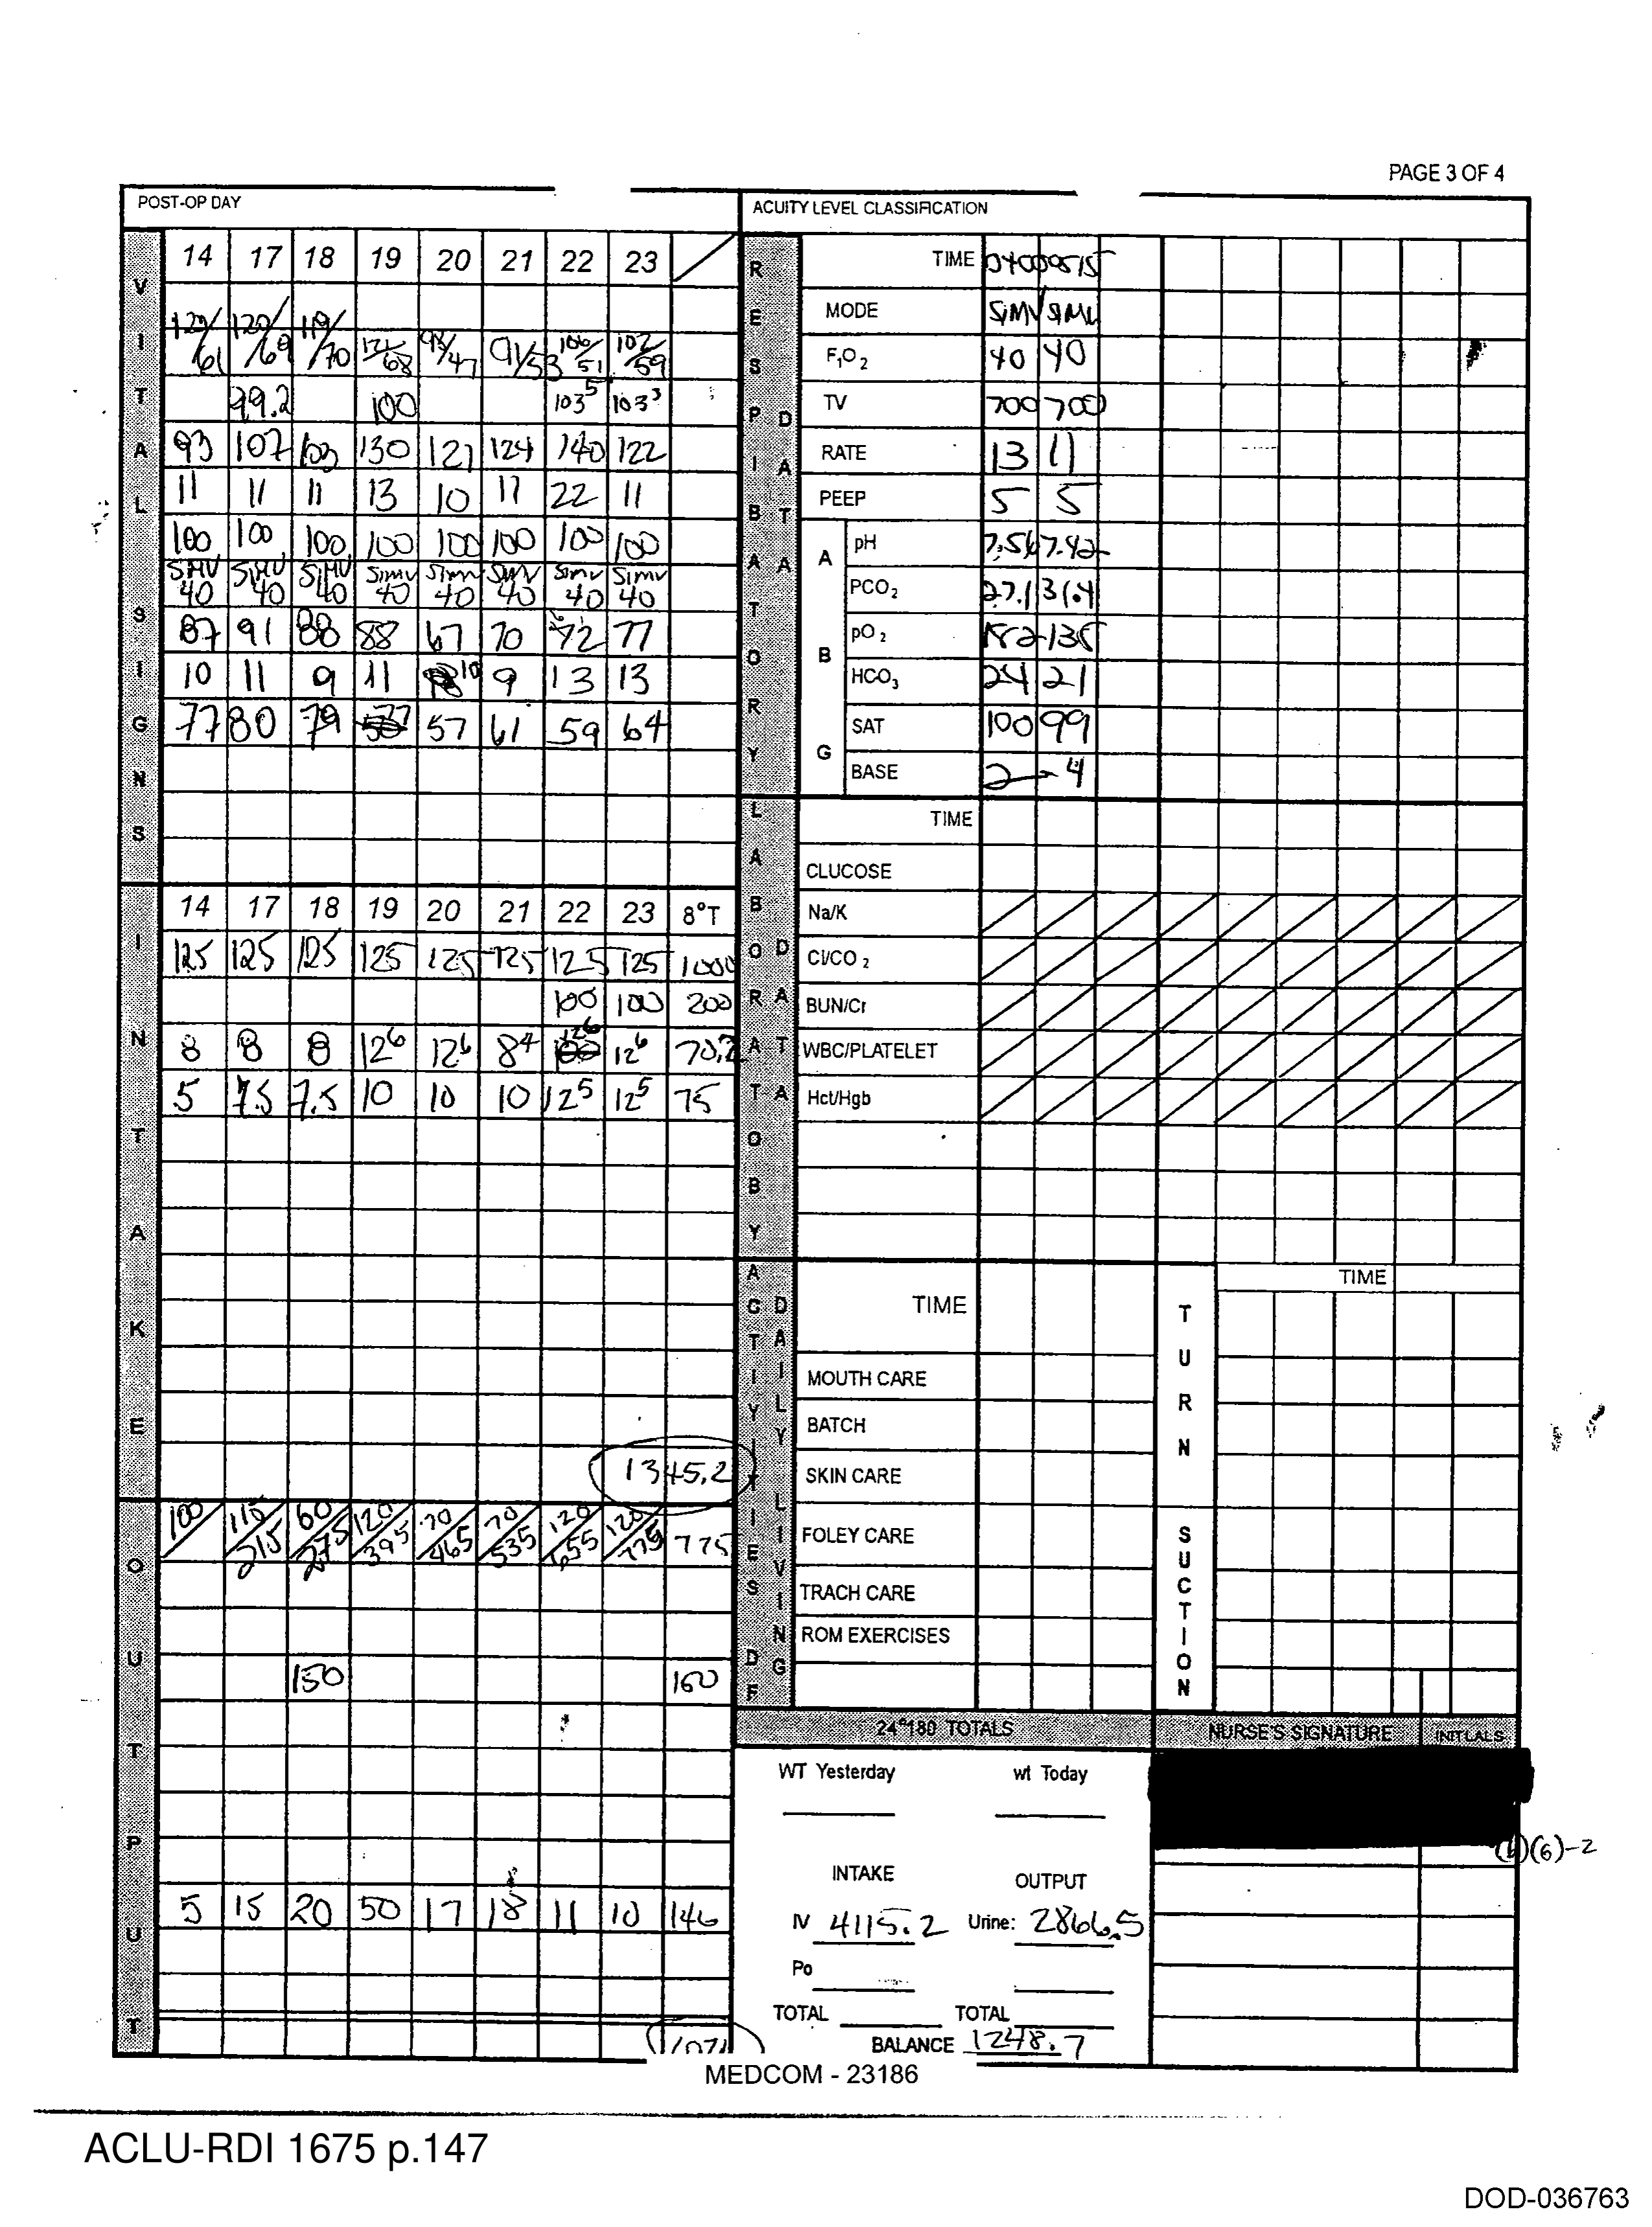 PAGE 3 OF 4
POST-OP DAY
ACUITY LEVEL CLASSIFICATION
VITAL SIGNS
14 17 18 19 20 21 22 23
120/61 120/69 119/70 121/68 98/47 91/53 106/51 102/59
99.2 100 103⁵ 103³
93 107 103 130 121 124 140 122
11 11 11 13 10 11 22 11
100 100 100 100 100 100 100 100
SIMV SIMV SIMV SIMV SIMV SIMV SIMV SIMV
40 40 40 40 40 40 40 40
87 91 88 88 67 70 72 77
10 11 9 11 10 9 13 13
77 80 79 77 57 61 59 64
INTAKE
14 17 18 19 20 21 22 23 8°T
125 125 125 125 125 125 125 125 1000
100 100 200
8 8 8 12⁶ 12⁶ 8⁴ 12⁶ 12⁶ 70.2
5 7.5 7.5 10 10 10 12⁵ 12⁵ 75
1345.2
OUTPUT
100 115/215 60/275 120/395 70/465 70/535 120/655 120/775 775
150 150
5 15 20 50 17 18 11 10 146
1071
RESPIBATORY DATA
TIME 0400 0515
MODE SIMV SIMV
F₁O₂ 40 40
TV 700 700
RATE 13 11
PEEP 5 5
ABG
pH 7.56 7.42
PCO₂ 27.1 31.4
pO₂ 182 135
HCO₃ 24 21
SAT 100 99
BASE 2 -4
LABORATOBY DATA
TIME
CLUCOSE
Na/K
Cl/CO₂
BUN/Cr
WBC/PLATELET
Hct/Hgb
AGTIYITIES DF DAILY LIVING
TIME
MOUTH CARE
BATCH
SKIN CARE
FOLEY CARE
TRACH CARE
ROM EXERCISES
TURN
SUCTION
TIME
24°180 TOTALS
NURSE'S SIGNATURE
INITLALS
WT Yesterday wt Today
(b)(6)-2
INTAKE OUTPUT
IV 4115.2 Urine: 2866.5
Po
TOTAL TOTAL
BALANCE 1248.7
MEDCOM - 23186
ACLU-RDI 1675 p.147
DOD-036763